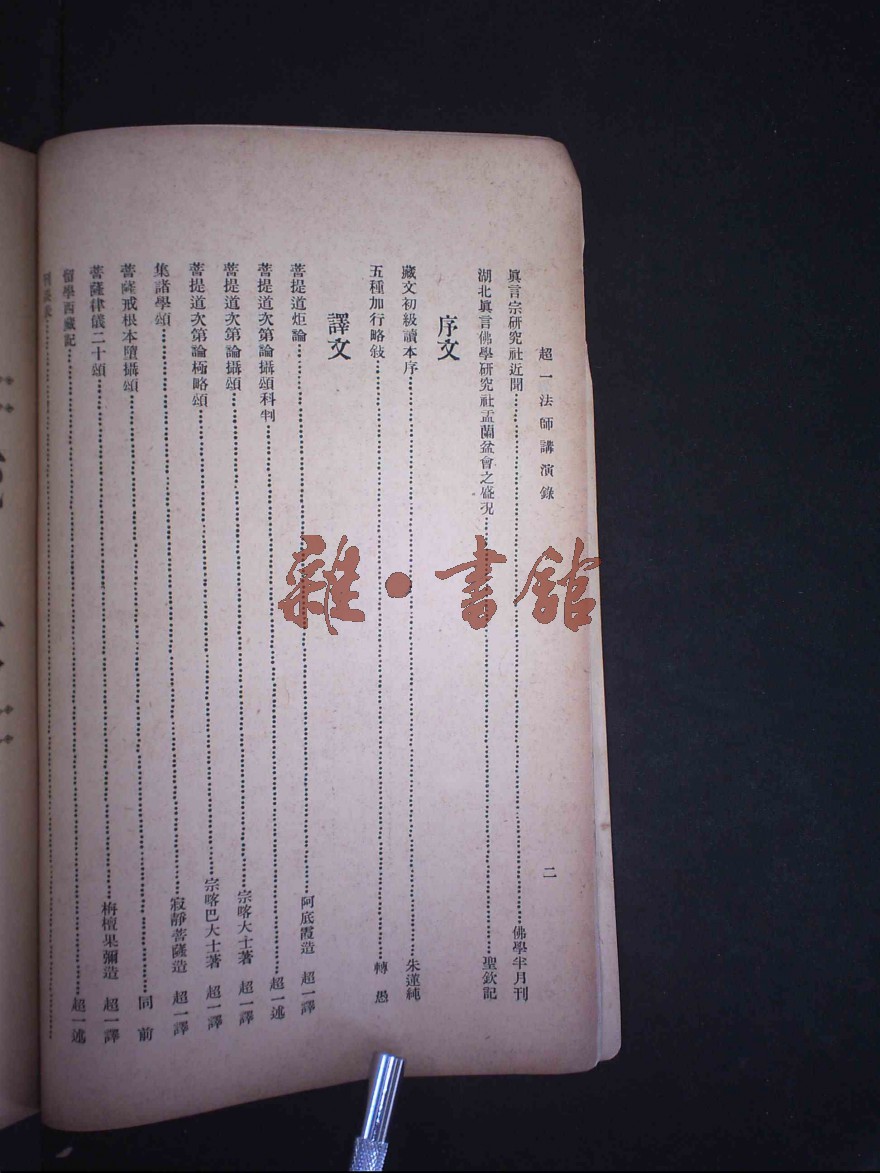 超一法師講演錄 二
眞言宗研究社近聞 佛學半月刊
湖北眞言佛學研究社盂蘭盆會之盛况 聖欽記
序文
藏文初級讀本序 朱蓮純
五種加行略敍 轉愚
譯文
菩提道炬論 阿底霞造 超一譯
菩提道次第論攝頌科判 超一述
菩提道次第論攝頌 宗喀大士著 超一譯
菩提道次第論極略頌 宗喀巴大士著 超一譯
集諸學頌 寂靜菩薩造 超一譯
菩薩戒根本墮攝頌 同前
菩薩律儀二十頌 栴檀果彌造 超一譯
留學西藏記 超一述
雜·書館